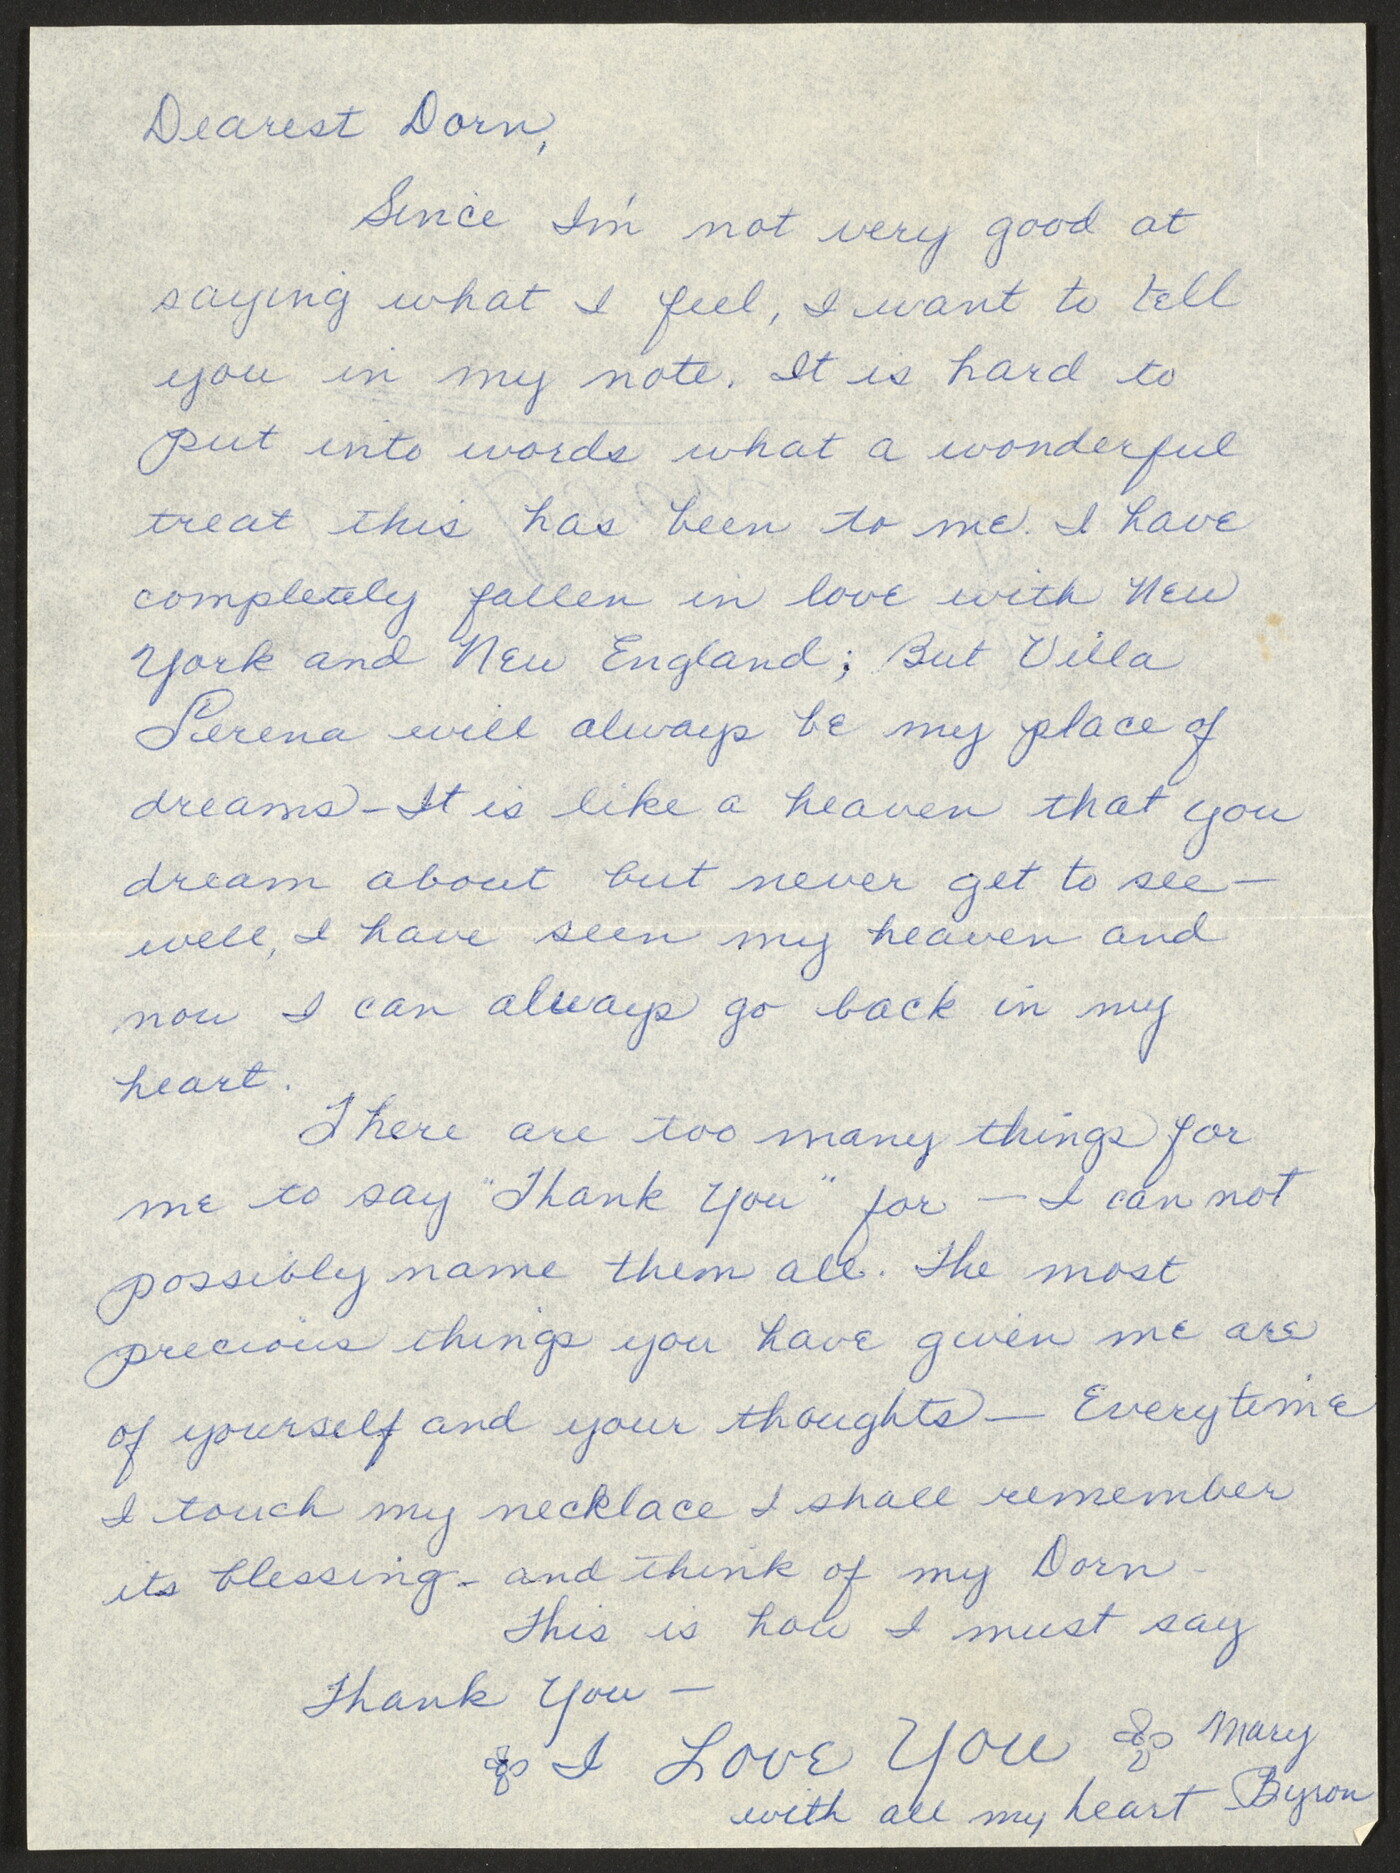 Dearest Dorn,
Since I'm not very good at
saying what I feel, I want to tell
you in my note. It is hard to
put into words what a wonderful
treat this has been to me. I have
completely fallen in love with New
York and New England; But Villa
Serena will always be my place of
dreams - It is like a heaven that you
dream about but never get to see —
well, I have seen my heaven and
now I can always go back in my
heart.
There are too many things for
me to say "Thank You" for — I can not
possibly name them all. The most
precious things you have given me are
of yourself and your thoughts — Everytime
I touch my necklace I shall remember
its blessing - and think of my Dorn -
This is how I must say
Thank You —
I Love You Mary
with all my heart Byron